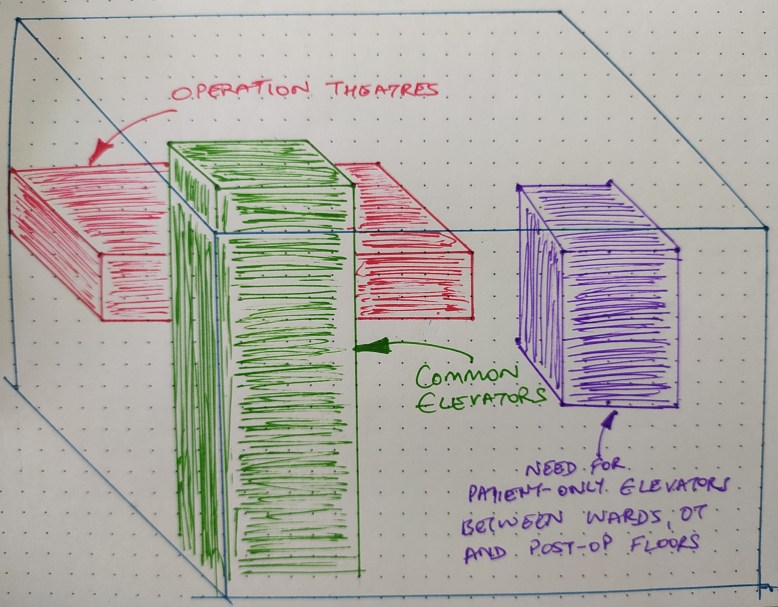 OPERATION THEATRES
COMMON
ELEVATORS
NEED FOR
PATIENT-ONLY ELEVATORS
BETWEEN WARDS, OT
AND POST-OP FLOORS